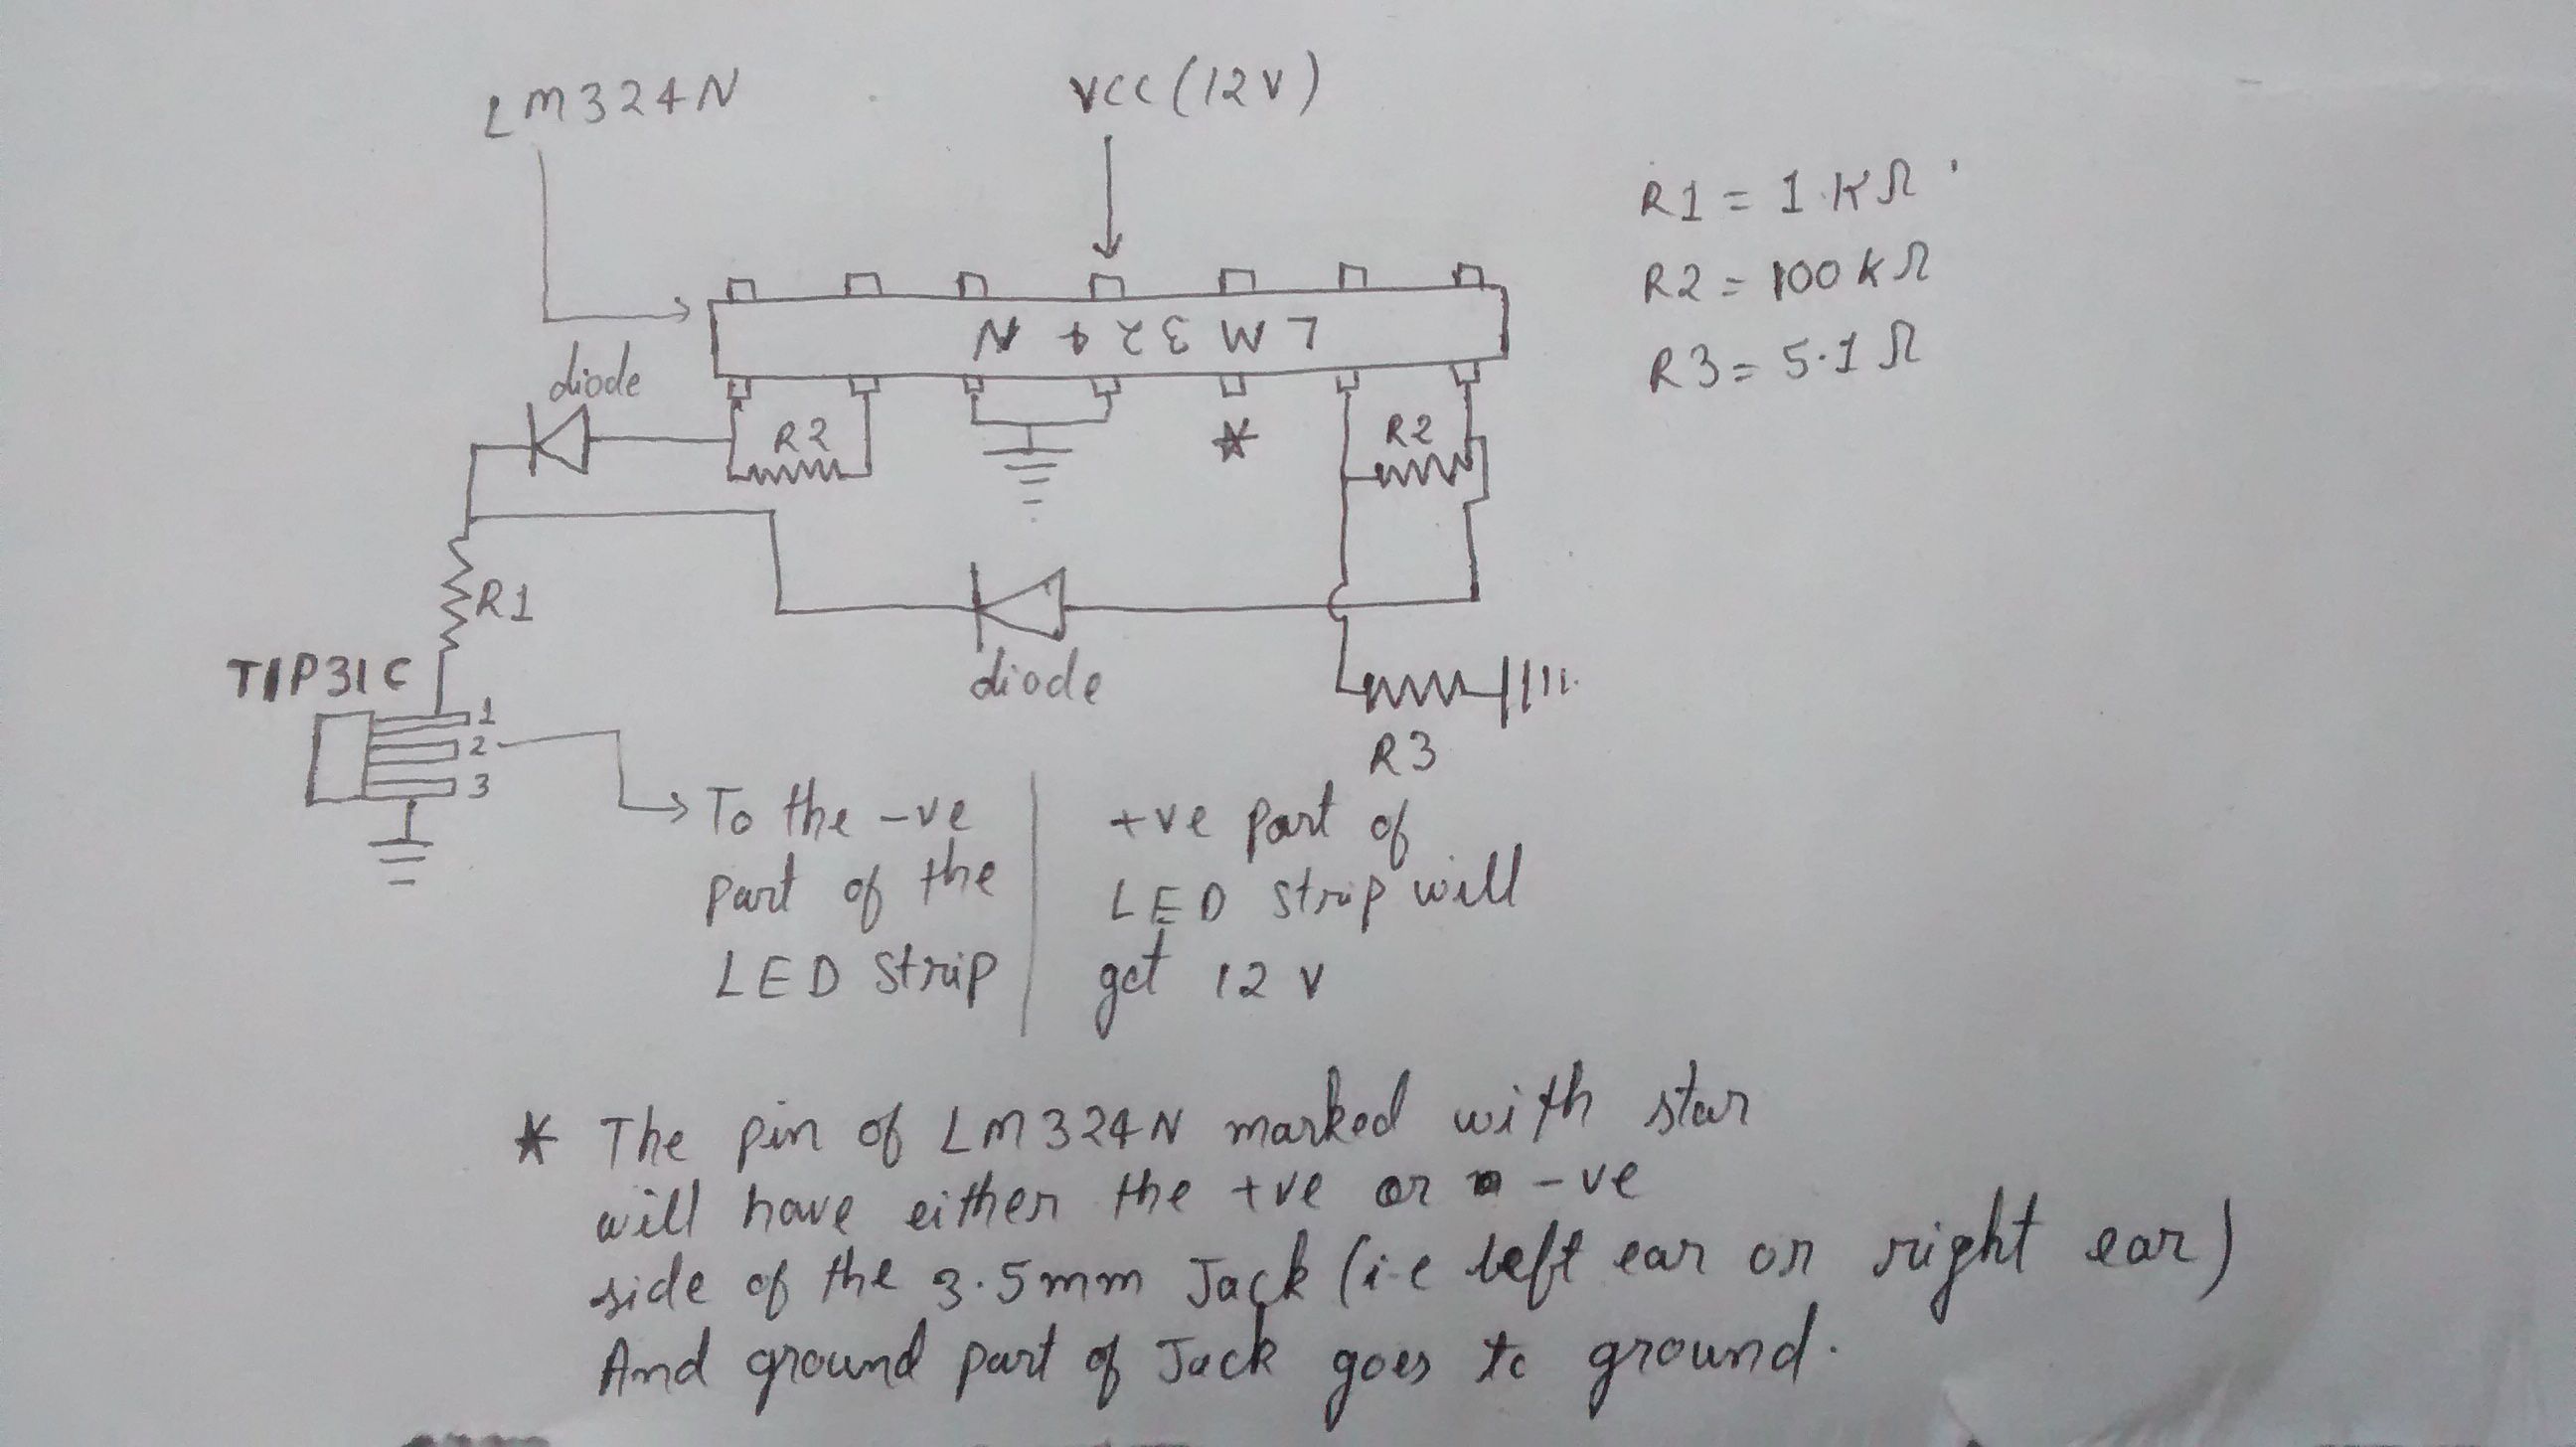 LM324N
VCC (12V)
R1 = 1 KΩ
R2 = 100 KΩ
R3 = 5.1 Ω
LM324N
diode
R2
*
R2
R1
diode
TIP31C
1
2
3
R3
To the -ve
part of the
LED strip
+ve part of
LED strip will
get 12 v
* The pin of LM324N marked with star
will have either the +ve or -ve
side of the 3.5mm Jack (i.e left ear or right ear)
And ground part of Jack goes to ground.